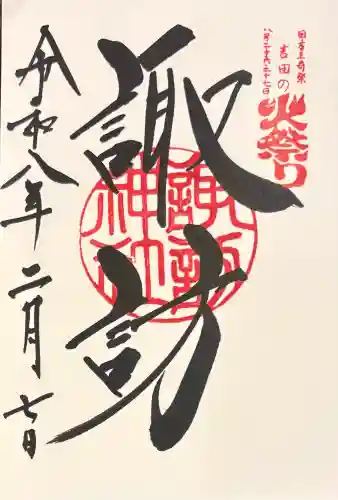 日本三奇祭
八月二十六・二十七日
吉田の
火祭り
諏訪
諏訪神社
令和八年二月七日